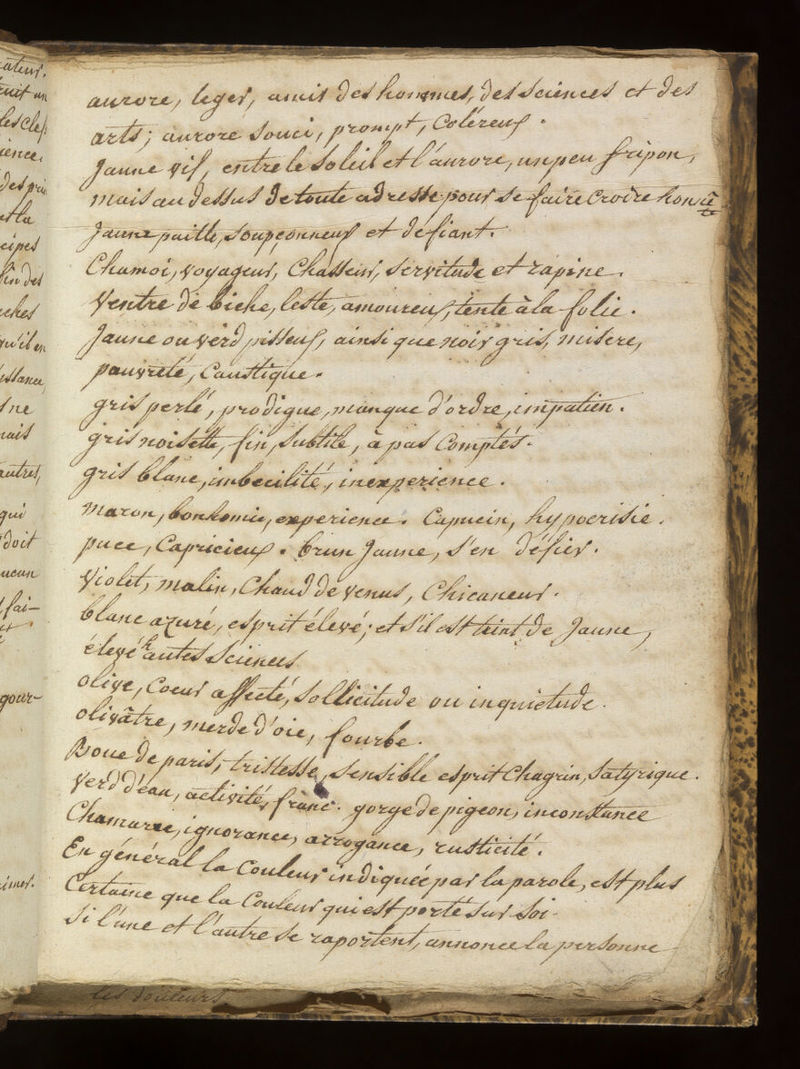 aurore, leger, amis des hommes, des sciences et des
arts; aurore souci, prompt, Coléreux.
Jaune vif, entre le soleil et l'aurore, un peu fripon,
mais au dessus de toute adresse pour se faire Croire honnête
Jaune paille, soupconneux et défiant.
Chamoi, voyageur, Chasseur, servitude et rapine.
Ventre de biche, leste, amoureux, tente à la folie.
Jaune ou verd pisseux, ainsi que noir gris, misere,
pauvreté, Caustique.
gris perlé, prodigue, manque d'ordre, impatien.
gris noisette, fin, subtile, à pas Comptés.
gris blanc, imbecilité, inexperience.
maron, bonhomie, experience. Capucin, hypocrisie.
puce, Capricieux. brun Jaune, s'en défier.
Violet, malin, Chaud de venus, Chicaneur.
blanc azuré, esprit élevé; et s'il est teint de Jaune,
élevé hautes sciences
olive, Coeur affecté, sollicitude ou inquietude.
olivâtre, merde d'oie, fourbe.
Boue de paris, tristesse, sensible esprit Chagrin, satyrique.
Verd d'eau, activité, franc. gorge de pigeon, inconstance
Chamarre, ignorance, arrogance, rusticité.
En général la Couleur indiquée par la parole, est plus
Certaine que la Couleur qui est porté sur soi.
si l'une et l'autre se raportent, annonce la personne
les douleurs